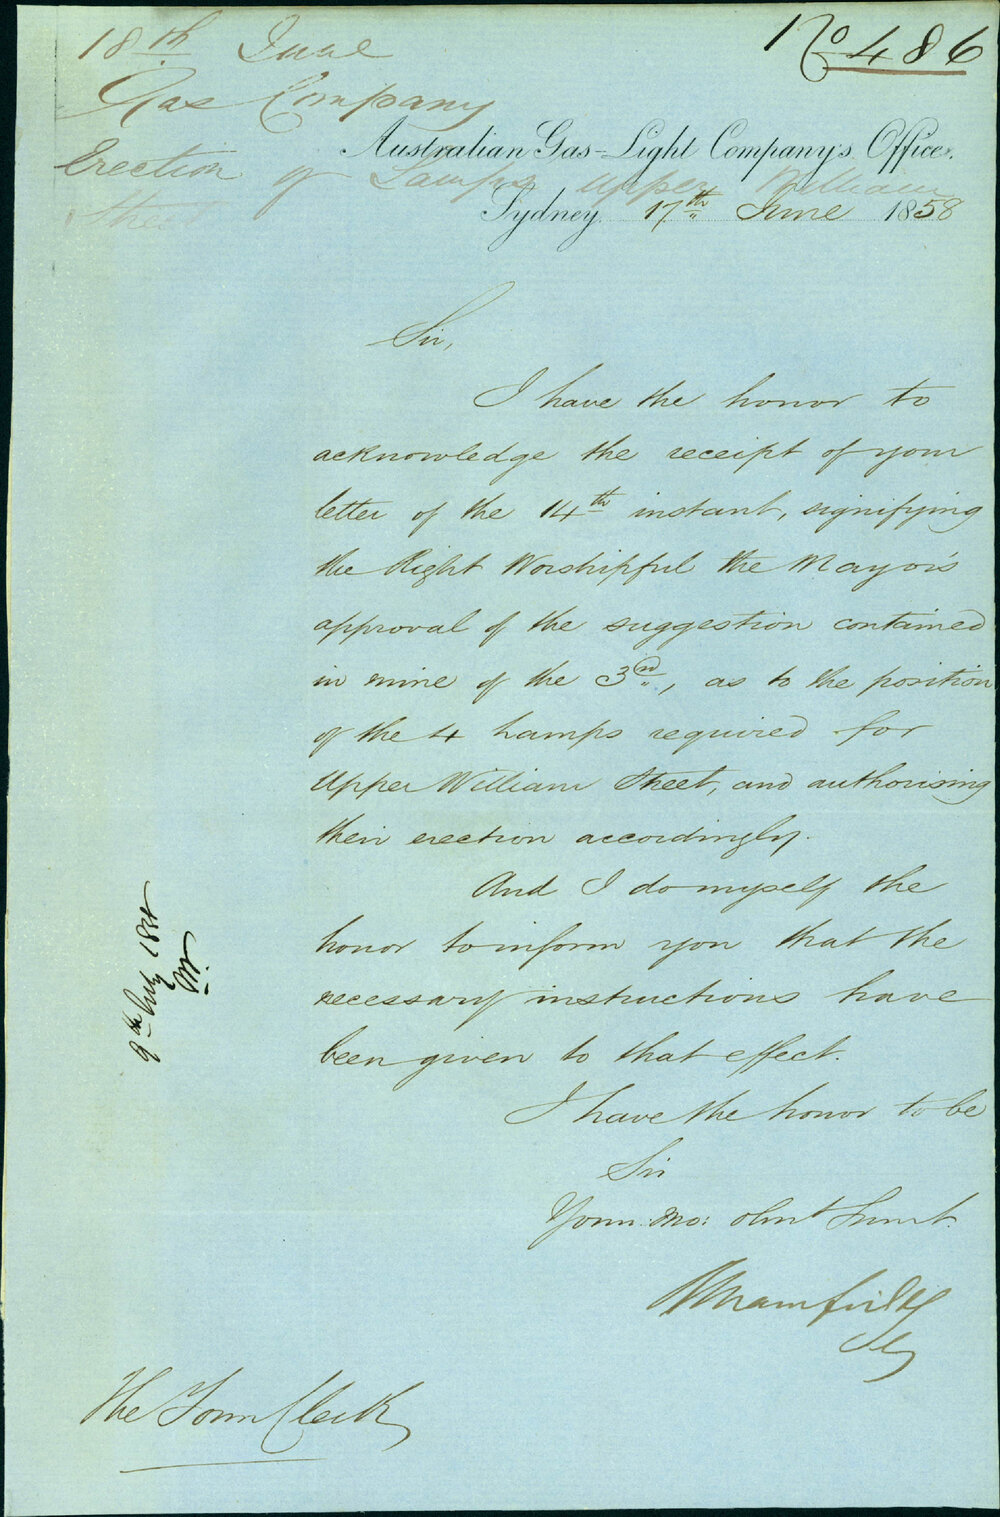 No 486
18th June
Gas Company
Erection of Lamps Upper William
Street
Australian Gas-Light Company's Office.
Sydney. 17th June 1858
Sir,
I have the honor to
acknowledge the receipt of your
letter of the 14th instant, signifying
the Right Worshipful the Mayor's
approval of the suggestion contained
in mine of the 3rd, as to the position
of the 4 Lamps required for
Upper William Street, and authorising
their erection accordingly.
And I do myself the
honor to inform you that the
necessary instructions have
been given to that effect.
I have the honor to be
Sir
Your mo: obnt Servt.
Mansfield
Sey
9th July
The Town Clerk